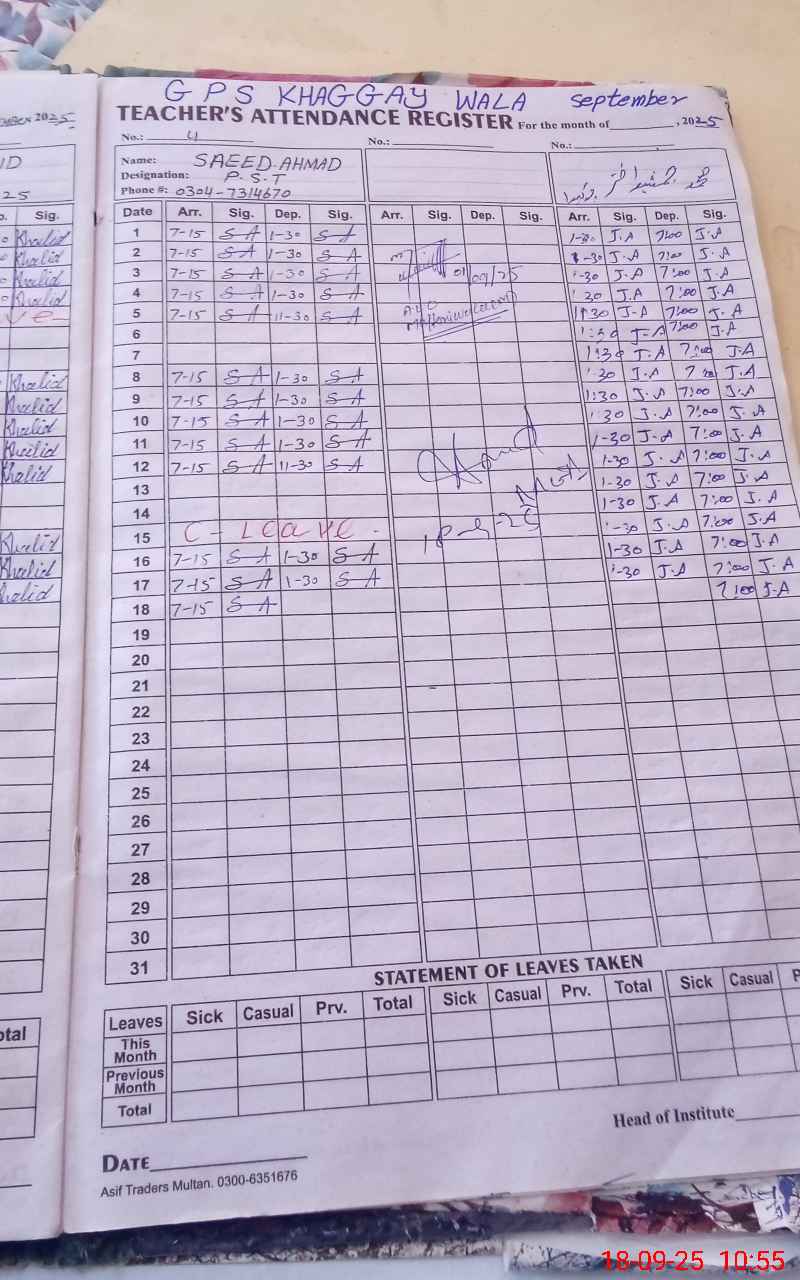 GPS KHAGGAY WALA September
TEACHER'S ATTENDANCE REGISTER For the month of , 2025
No.: 4 No.: No.:
Name: SAEED AHMAD
Designation: P.S.T
Phone #: 0304-7314670
Date Arr. Sig. Dep. Sig. Arr. Sig. Dep. Sig. Arr. Sig. Dep. Sig.
1 7-15 S A 1-30 S A 1-30 J.A 7:00 J.A
2 7-15 S A 1-30 S A 1-30 J.A 7:00 J.A
3 7-15 S A 1-30 S A 01/09/25 1-30 J.A 7:00 J.A
4 7-15 S A 1-30 S A 1-30 J.A 7:00 J.A
5 7-15 S A 11-30 S A 11:30 J-A 7:00 J.A
6 1:30 J-A 7:00 J.A
7 1:30 J.A 7:00 J.A
8 7-15 S A 1-30 S A 1-30 J.A 7:00 J.A
9 7-15 S A 1-30 S A 1:30 J.A 7:00 J.A
10 7-15 S A 1-30 S A 1:30 J.A 7:00 J.A
11 7-15 S A 1-30 S A 1-30 J.A 7:00 J.A
12 7-15 S A 11-30 S A 1-30 J.A 7:00 J.A
13 1-30 J.A 7:00 J.A
14 1-30 J.A 7:00 J.A
15 C - Leave. 18-9-25 1-30 J.A 7:00 J.A
16 7-15 S A 1-30 S A 1-30 J.A 7:00 J.A
17 7-15 S A 1-30 S A 1-30 J.A 7:00 J.A
18 7-15 S A 7:00 J.A
19
20
21
22
23
24
25
26
27
28
29
30
31
STATEMENT OF LEAVES TAKEN
Leaves Sick Casual Prv. Total Sick Casual Prv. Total Sick Casual P
This Month
Previous Month
Total
Head of Institute
DATE
Asif Traders Multan. 0300-6351676
2025
ID
25
Sig.
Khalid
Khalid
Khalid
Khalid
ve
Khalid
Khalid
Khalid
Khalid
Khalid
Khalid
Khalid
Khalid
otal
18-09-25 10:55